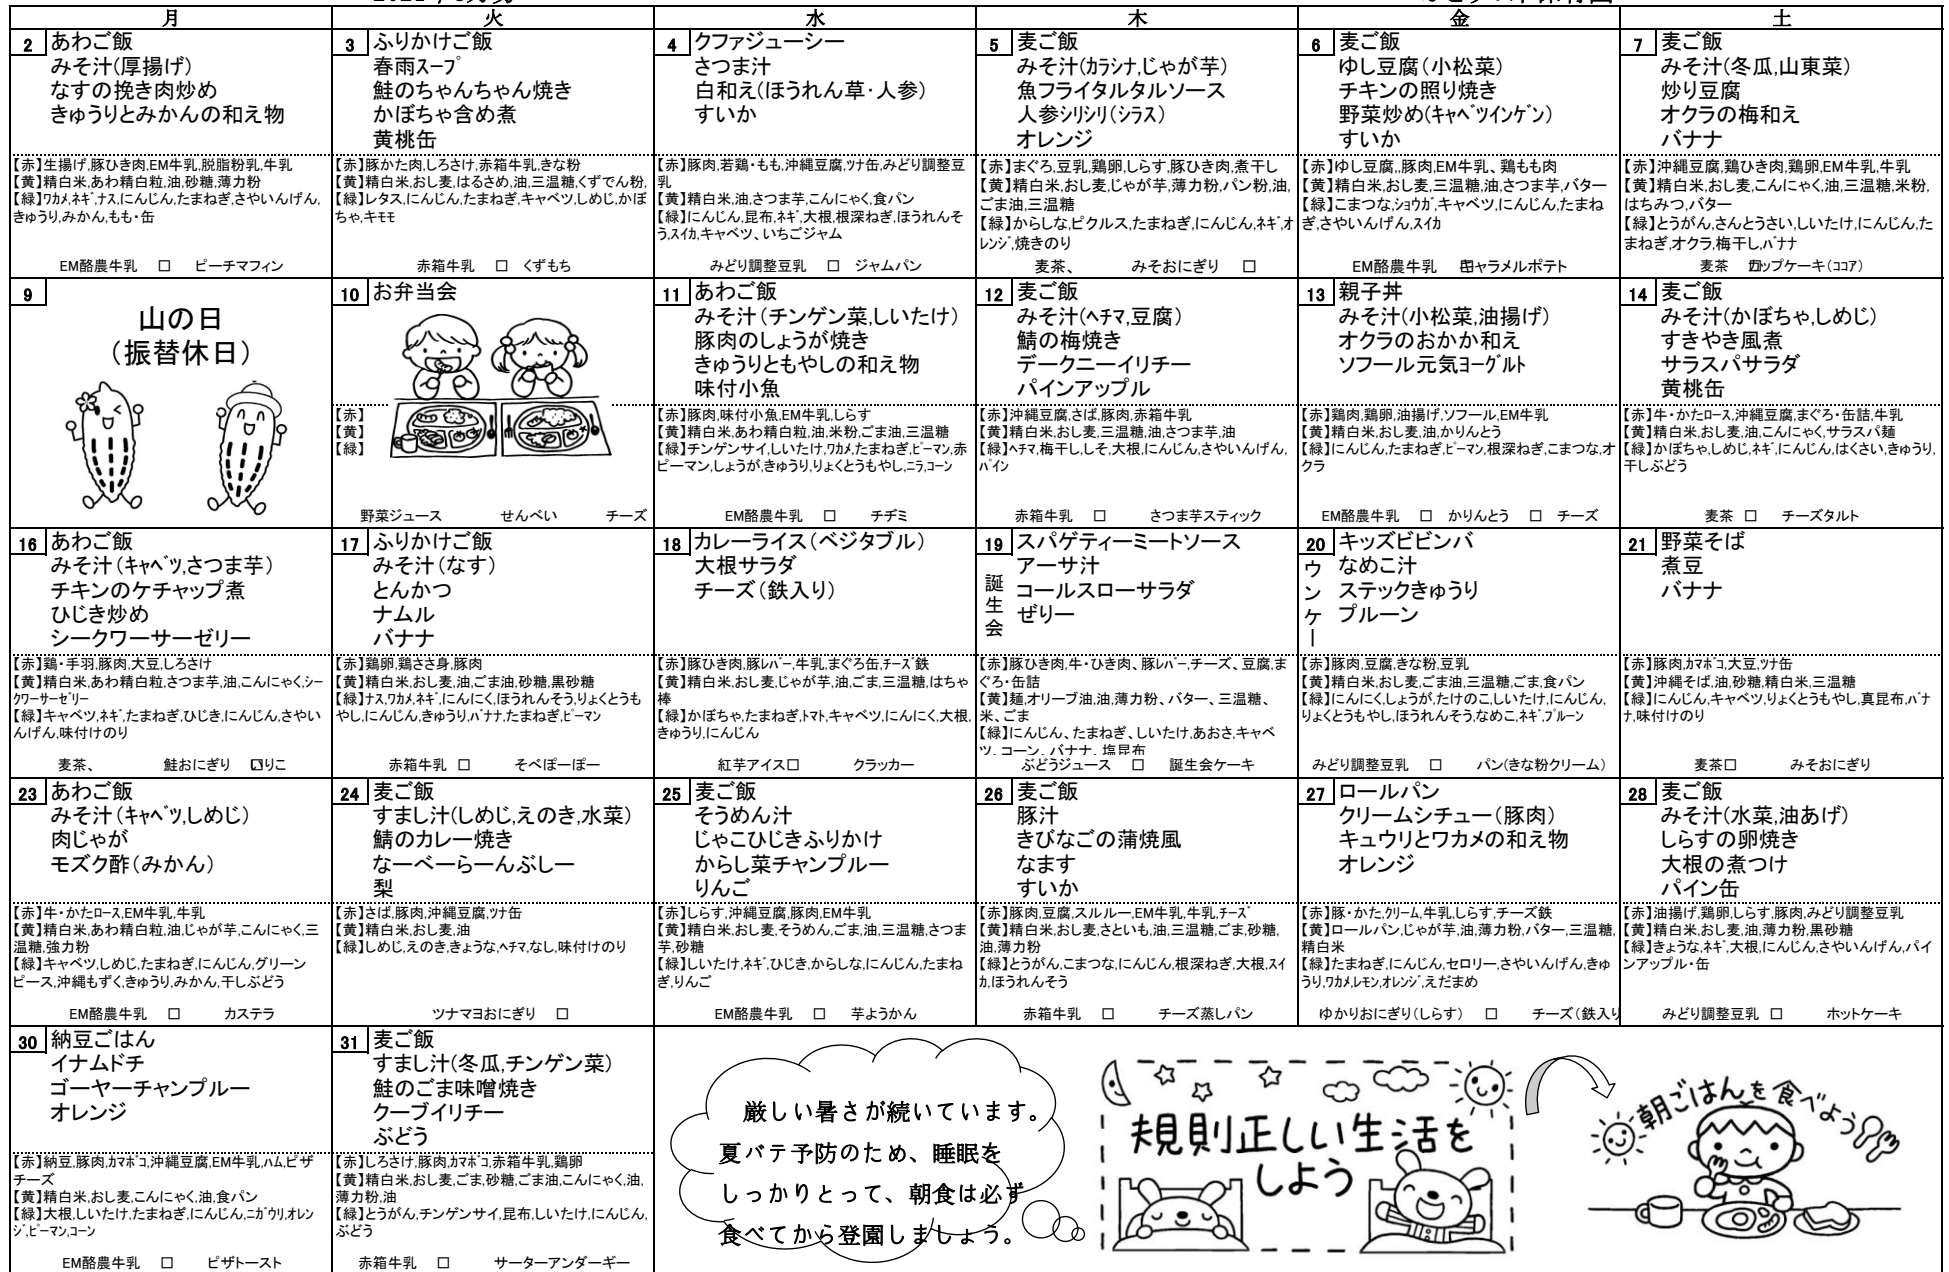 月 火 水 木 金 土
2 あわご飯
みそ汁(厚揚げ)
なすの挽き肉炒め
きゅうりとみかんの和え物
【赤】生揚げ,豚ひき肉,EM牛乳,脱脂粉乳,牛乳
【黄】精白米,あわ精白粒,油,砂糖,薄力粉
【緑】ワカメ,ネギ,ナス,にんじん,たまねぎ,さやいんげん,
きゅうり,みかん,もも・缶
EM酪農牛乳 □ ピーチマフィン
3 ふりかけご飯
春雨スープ
鮭のちゃんちゃん焼き
かぼちゃ含め煮
黄桃缶
【赤】豚かた肉,しろさけ,赤箱牛乳,きな粉
【黄】精白米,おし麦,はるさめ,油,三温糖,くずでん粉,
【緑】レタス,にんじん,たまねぎ,キャベツ,しめじ,かぼ
ちゃ,キモモ
赤箱牛乳 □ くずもち
4 クファジューシー
さつま汁
白和え(ほうれん草・人参)
すいか
【赤】豚肉,若鶏・もも,沖縄豆腐,ツナ缶,みどり調整豆
乳
【黄】精白米,油,さつま芋,こんにゃく,食パン
【緑】にんじん,昆布,ネギ,大根,根深ねぎ,ほうれんそ
う,スイカ,キャベツ、いちごジャム
みどり調整豆乳 □ ジャムパン
5 麦ご飯
みそ汁(カラシナ,じゃが芋)
魚フライタルタルソース
人参シリシリ(シラス)
オレンジ
【赤】まぐろ,豆乳,鶏卵,しらす,豚ひき肉,煮干し
【黄】精白米,おし麦,じゃが芋,薄力粉,パン粉,油,
ごま油,三温糖
【緑】からしな,ピクルス,たまねぎ,にんじん,ネギ,オ
レンジ,焼きのり
麦茶、 みそおにぎり □
6 麦ご飯
ゆし豆腐(小松菜)
チキンの照り焼き
野菜炒め(キャベツインゲン)
すいか
【赤】ゆし豆腐,,豚肉,EM牛乳、鶏もも肉
【黄】精白米,おし麦,三温糖,油,さつま芋,バター
【緑】こまつな,ショウガ,キャベツ,にんじん,たまね
ぎ,さやいんげん,スイカ
EM酪農牛乳 キャラメルポテト
7 麦ご飯
みそ汁(冬瓜,山東菜)
炒り豆腐
オクラの梅和え
バナナ
【赤】沖縄豆腐,鶏ひき肉,鶏卵,EM牛乳,牛乳
【黄】精白米,おし麦,こんにゃく,油,三温糖,米粉,
はちみつ,バター
【緑】とうがん,さんとうさい,しいたけ,にんじん,た
まねぎ,オクラ,梅干し,バナナ
麦茶 カップケーキ(ココア)
9
山の日
(振替休日)
10 お弁当会
【赤】
【黄】
【緑】
野菜ジュース せんべい チーズ
11 あわご飯
みそ汁(チンゲン菜,しいたけ)
豚肉のしょうが焼き
きゅうりともやしの和え物
味付小魚
【赤】豚肉,味付小魚,EM牛乳,しらす
【黄】精白米,あわ精白粒,油,米粉,ごま油,三温糖
【緑】チンゲンサイ,しいたけ,ワカメ,たまねぎ,ピーマン,赤
ピーマン,しょうが,きゅうり,りょくとうもやし,ニラ,コーン
EM酪農牛乳 □ チヂミ
12 麦ご飯
みそ汁(ヘチマ,豆腐)
鯖の梅焼き
デークニーイリチー
パインアップル
【赤】沖縄豆腐,さば,豚肉,赤箱牛乳
【黄】精白米,おし麦,三温糖,油,さつま芋,油
【緑】ヘチマ,梅干し,しそ,大根,にんじん,さやいんげん,
パイン
赤箱牛乳 □ さつま芋スティック
13 親子丼
みそ汁(小松菜,油揚げ)
オクラのおかか和え
ソフール元気ヨーグルト
【赤】鶏肉,鶏卵,油揚げ,ソフール,EM牛乳
【黄】精白米,おし麦,油,かりんとう
【緑】にんじん,たまねぎ,ピーマン,根深ねぎ,こまつな,オ
クラ
EM酪農牛乳 □ かりんとう □ チーズ
14 麦ご飯
みそ汁(かぼちゃ,しめじ)
すきやき風煮
サラスパサラダ
黄桃缶
【赤】牛・かたロース,沖縄豆腐,まぐろ・缶詰,牛乳
【黄】精白米,おし麦,油,こんにゃく,サラスパ麺
【緑】かぼちゃ,しめじ,ネギ,にんじん,はくさい,きゅうり,
干しぶどう
麦茶 □ チーズタルト
16 あわご飯
みそ汁(キャベツ,さつま芋)
チキンのケチャップ煮
ひじき炒め
シークワーサーゼリー
【赤】鶏・手羽,豚肉,大豆,しろさけ
【黄】精白米,あわ精白粒,さつま芋,油,こんにゃく,シー
クワーサーゼリー
【緑】キャベツ,ネギ,たまねぎ,ひじき,にんじん,さやい
んげん,味付けのり
麦茶、 鮭おにぎり いりこ
17 ふりかけご飯
みそ汁(なす)
とんかつ
ナムル
バナナ
【赤】鶏卵,鶏ささ身,豚肉
【黄】精白米,おし麦,油,ごま油,砂糖,黒砂糖
【緑】ナス,ワカメ,ネギ,にんにく,ほうれんそう,りょくとうも
やし,にんじん,きゅうり,バナナ,たまねぎ,ピーマン
赤箱牛乳 □ そべぽーぽー
18 カレーライス(ベジタブル)
大根サラダ
チーズ(鉄入り)
【赤】豚ひき肉,豚レバー,牛乳,まぐろ缶,チーズ鉄
【黄】精白米,おし麦,じゃが芋,油,ごま,三温糖,はちゃ
棒
【緑】かぼちゃ,たまねぎ,トマト,キャベツ,にんにく,大根,
きゅうり,にんじん
紅芋アイス□ クラッカー
19 スパゲティーミートソース
誕生会
アーサ汁
コールスローサラダ
ぜりー
【赤】豚ひき肉,牛・ひき肉、豚レバー,チーズ、豆腐,ま
ぐろ・缶詰
【黄】麺,オリーブ油,油,薄力粉、バター、三温糖、
米、ごま
【緑】にんじん、たまねぎ、しいたけ,あおさ,キャベ
ツ、コーン、バナナ、塩昆布
ぶどうジュース □ 誕生会ケーキ
20 キッズビビンバ
ウンケー
なめこ汁
ステックきゅうり
プルーン
【赤】豚肉,豆腐,きな粉,豆乳
【黄】精白米,おし麦,ごま油,三温糖,ごま,食パン
【緑】にんにく,しょうが,たけのこ,しいたけ,にんじん,
りょくとうもやし,ほうれんそう,なめこ,ネギ,プルーン
みどり調整豆乳 □ パン(きな粉クリーム)
21 野菜そば
煮豆
バナナ
【赤】豚肉,カマボコ,大豆,ツナ缶
【黄】沖縄そば,油,砂糖,精白米,三温糖
【緑】にんじん,キャベツ,りょくとうもやし,真昆布,バナ
ナ,味付けのり
麦茶□ みそおにぎり
23 あわご飯
みそ汁(キャベツ,しめじ)
肉じゃが
モズク酢(みかん)
【赤】牛・かたロース,EM牛乳,牛乳
【黄】精白米,あわ精白粒,油,じゃが芋,こんにゃく,三
温糖,強力粉
【緑】キャベツ,しめじ,たまねぎ,にんじん,グリーン
ピース,沖縄もずく,きゅうり,みかん,干しぶどう
EM酪農牛乳 □ カステラ
24 麦ご飯
すまし汁(しめじ,えのき,水菜)
鯖のカレー焼き
なーべーらーんぶしー
梨
【赤】さば,豚肉,沖縄豆腐,ツナ缶
【黄】精白米,おし麦,油
【緑】しめじ,えのき,きょうな,ヘチマ,なし,味付けのり
ツナマヨおにぎり □
25 麦ご飯
そうめん汁
じゃこひじきふりかけ
からし菜チャンプルー
りんご
【赤】しらす,沖縄豆腐,豚肉,EM牛乳
【黄】精白米,おし麦,そうめん,ごま,油,三温糖,さつま
芋,砂糖
【緑】しいたけ,ネギ,ひじき,からしな,にんじん,たまね
ぎ,りんご
EM酪農牛乳 □ 芋ようかん
26 麦ご飯
豚汁
きびなごの蒲焼風
なます
すいか
【赤】豚肉,豆腐,スルルー,EM牛乳,牛乳,チーズ
【黄】精白米,おし麦,さといも,油,三温糖,ごま,砂糖,
油,薄力粉
【緑】とうがん,こまつな,にんじん,根深ねぎ,大根,スイ
カ,ほうれんそう
赤箱牛乳 □ チーズ蒸しパン
27 ロールパン
クリームシチュー(豚肉)
キュウリとワカメの和え物
オレンジ
【赤】豚・かた,クリーム,牛乳,しらす,チーズ鉄
【黄】ロールパン,じゃが芋,油,薄力粉,バター,三温糖,
精白米
【緑】たまねぎ,にんじん,セロリー,さやいんげん,きゅ
うり,ワカメ,レモン,オレンジ,えだまめ
ゆかりおにぎり(しらす) □ チーズ(鉄入り
28 麦ご飯
みそ汁(水菜,油あげ)
しらすの卵焼き
大根の煮つけ
パイン缶
【赤】油揚げ,鶏卵,しらす,豚肉,みどり調整豆乳
【黄】精白米,おし麦,油,薄力粉,黒砂糖
【緑】きょうな,ネギ,大根,にんじん,さやいんげん,パイ
ンアップル・缶
みどり調整豆乳 □ ホットケーキ
30 納豆ごはん
イナムドチ
ゴーヤーチャンプルー
オレンジ
【赤】納豆,豚肉,カマボコ,沖縄豆腐,EM牛乳,ハム,ピザ
チーズ
【黄】精白米,おし麦,こんにゃく,油,食パン
【緑】大根,しいたけ,たまねぎ,にんじん,ニガウリ,オレン
ジ,ピーマン,コーン
EM酪農牛乳 □ ピザトースト
31 麦ご飯
すまし汁(冬瓜,チンゲン菜)
鮭のごま味噌焼き
クーブイリチー
ぶどう
【赤】しろさけ,豚肉,カマボコ,赤箱牛乳,鶏卵
【黄】精白米,おし麦,ごま,砂糖,ごま油,こんにゃく,油,
薄力粉,油
【緑】とうがん,チンゲンサイ,昆布,しいたけ,にんじん,
ぶどう
赤箱牛乳 □ サーターアンダーギー
厳しい暑さが続いています。
夏バテ予防のため、睡眠を
しっかりとって、朝食は必ず
食べてから登園しましょう。
規則正しい生活を
しよう
朝ごはんを食べよう